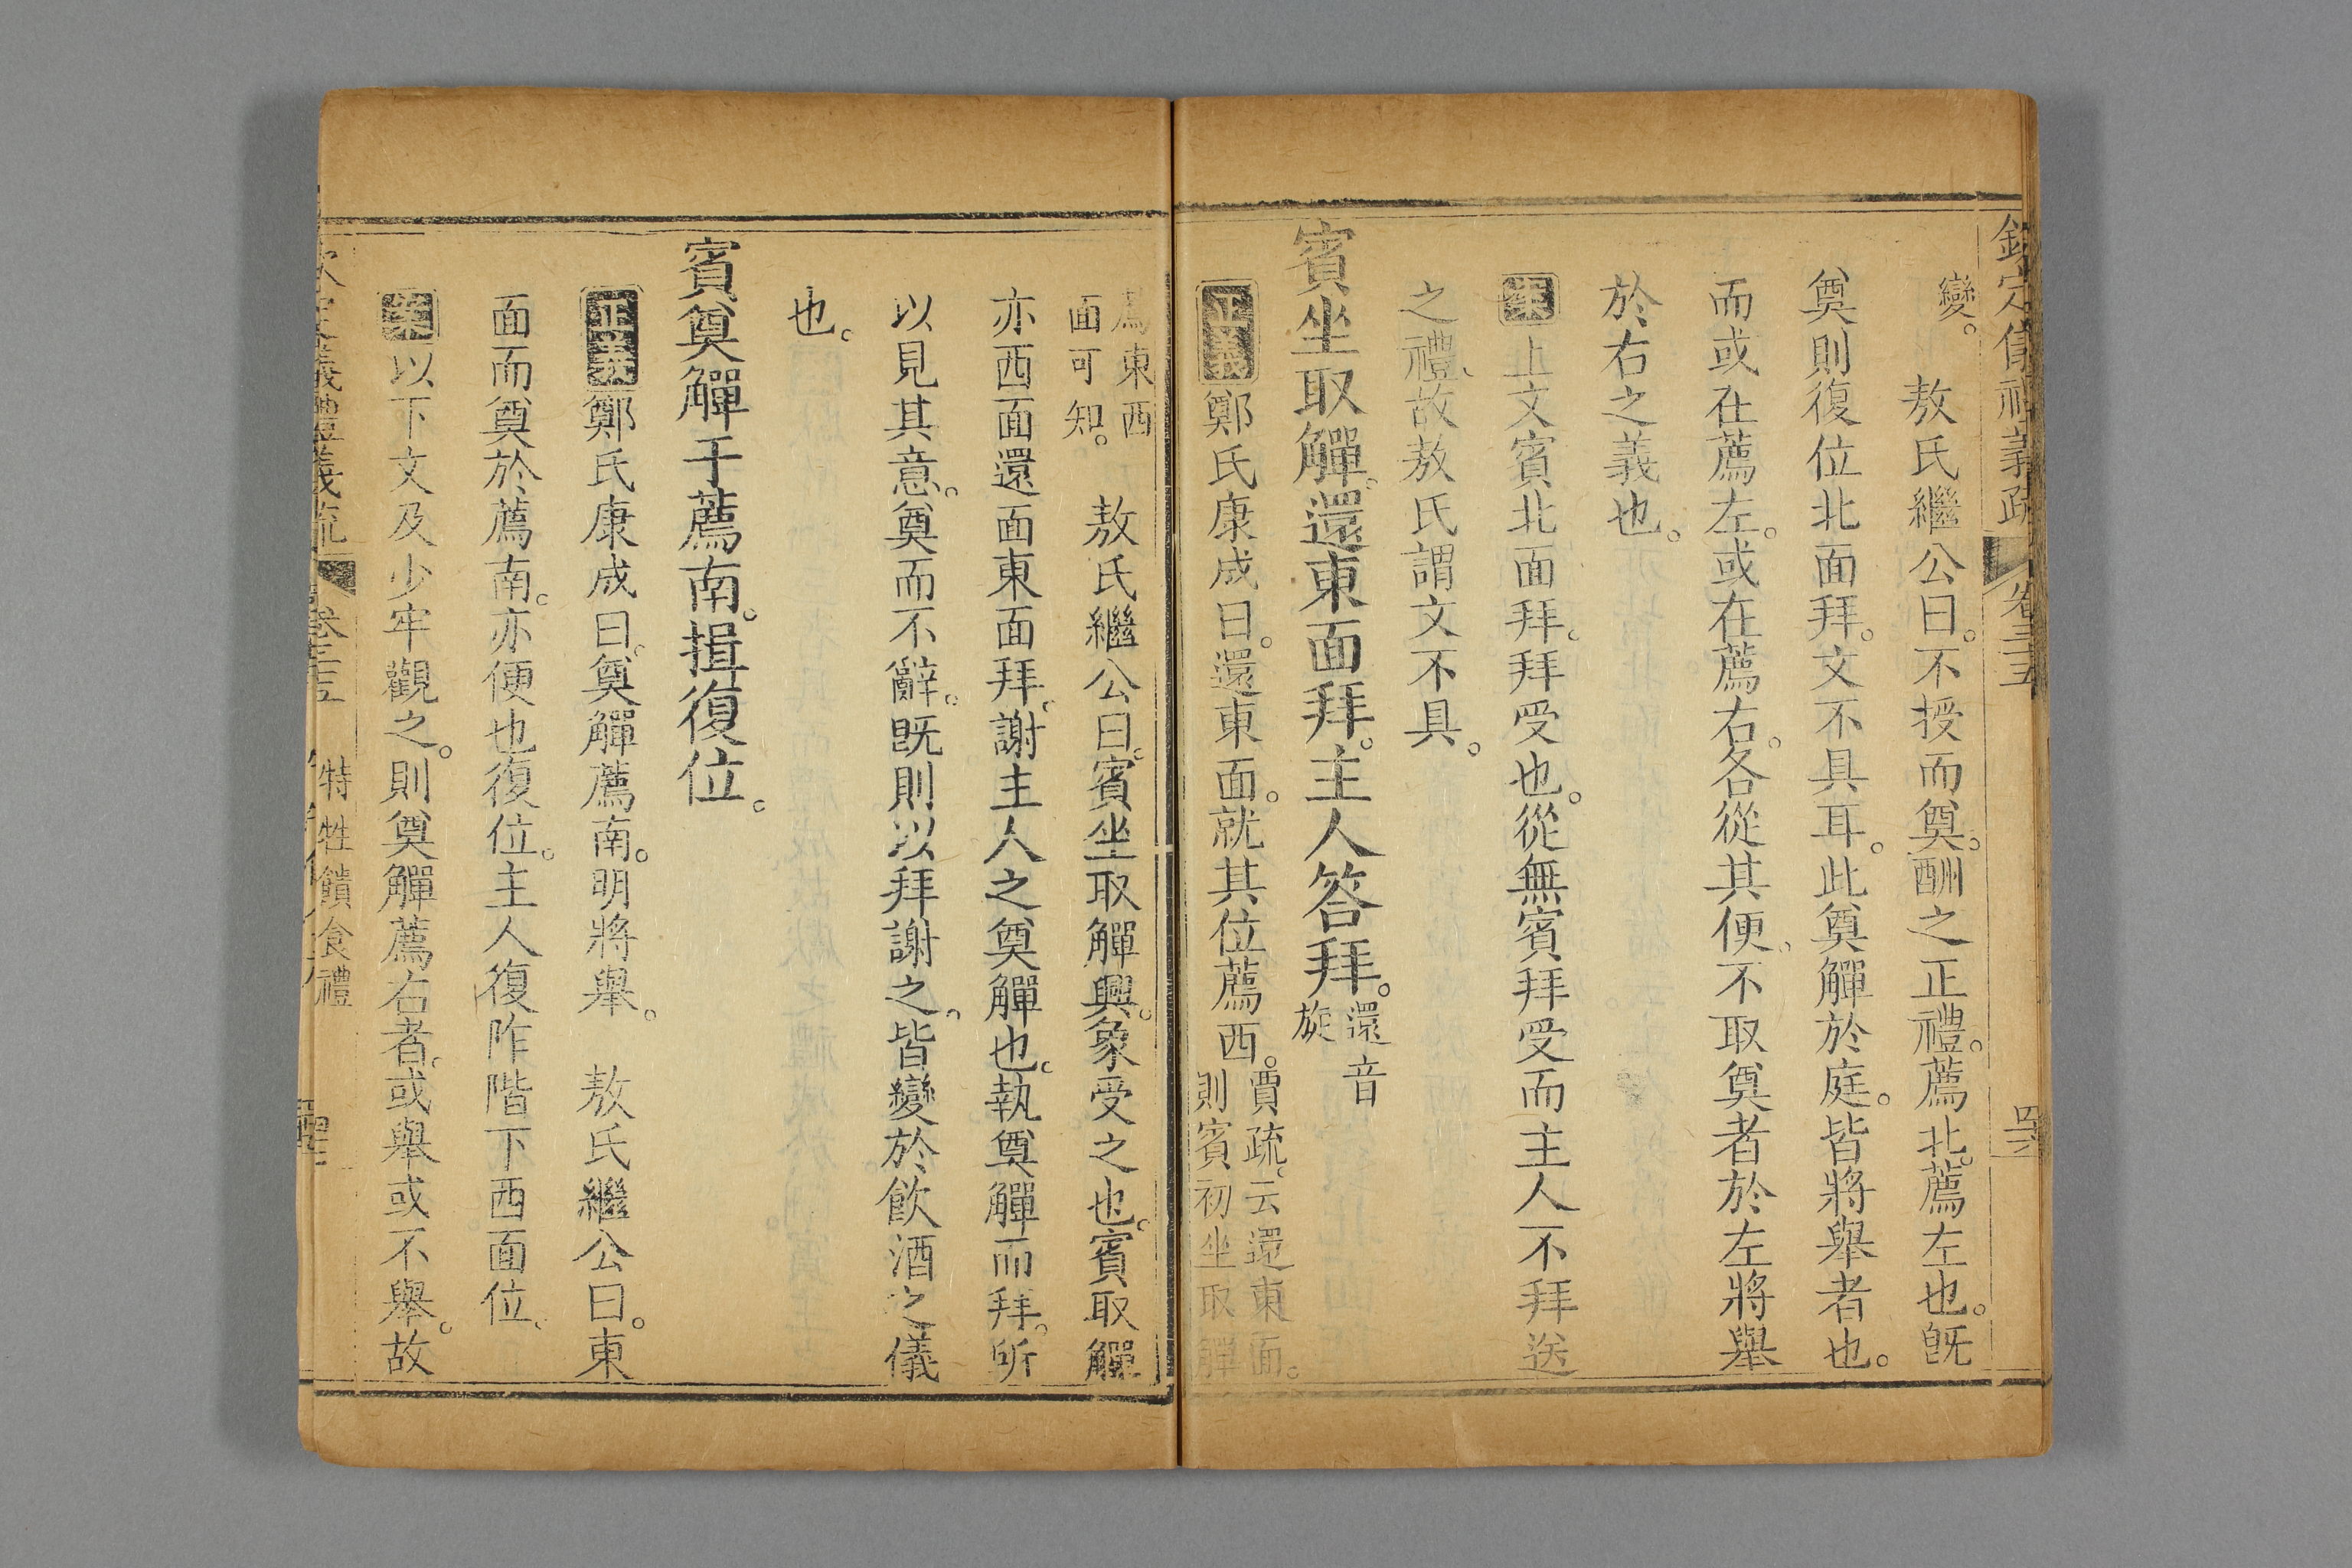 欽定儀禮義疏 卷三十五 四六
變。 敖氏繼公曰。不授而奠。酬之正禮。薦北。薦左也。旣
奠則復位北面拜。文不具耳。此奠觶於庭。皆將舉者也。
而或在薦左。或在薦右。各從其便。不取奠者於左將舉
於右之義也。
案上文賓北面拜。拜受也。從無賓拜受而主人不拜送
之禮、故敖氏謂文不具。
賓坐取觶。還東面拜。主人答拜。還音旋
正義鄭氏康成曰。還東面。就其位薦西。賈疏。云還東面。則賓初坐取觶
爲東西面可知。 敖氏繼公曰。賓坐取觶興。象受之也。賓取觶
亦西面還面東面拜。謝主人之奠觶也。執奠觶而拜。所
以見其意。奠而不辭。旣則以拜謝之。皆變於飲酒之儀
也。
賓奠觶于薦南。揖復位。
正義鄭氏康成曰。奠觶薦南。明將舉。 敖氏繼公曰。東
面而奠於薦南。亦便也復位。主人復阼階下西面位、
案以下文及少牢觀之。則奠觶薦右者。或舉或不舉。故
欽定儀禮義疏 卷三十五 特牲饋食禮